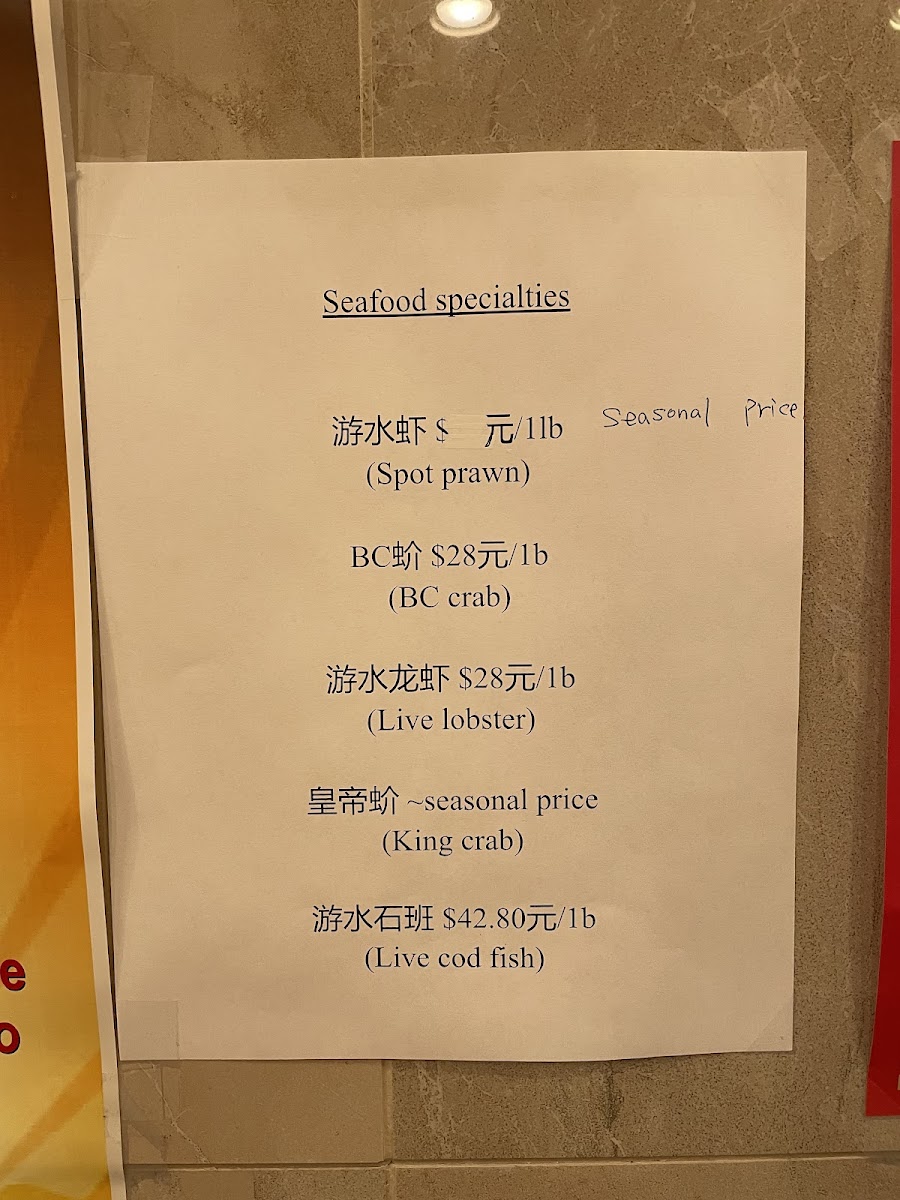 Seafood specialties
游水虾 $ 元/1lb seasonal price
(Spot prawn)
BC蚧 $28元/1b
(BC crab)
游水龙虾 $28元/1b
(Live lobster)
皇帝蚧 ~seasonal price
(King crab)
游水石班 $42.80元/1b
(Live cod fish)
e
o